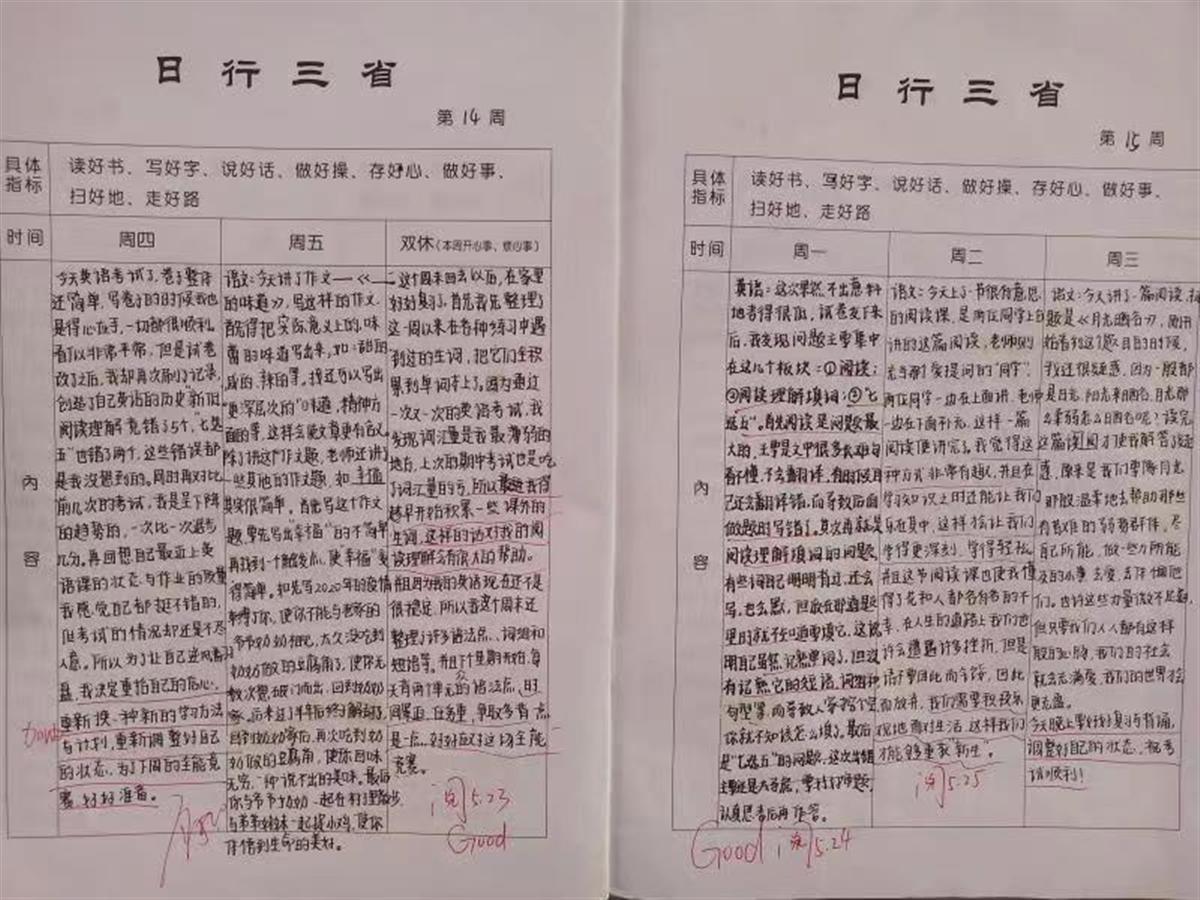 日行三省
第14周
具体指标
读好书、写好字、说好话、做好操、存好心、做好事、
扫好地、走好路
时间
周四
周五
双休(本周开心事、烦心事)
内容
今天英语考试了,卷子整体
还简单,写卷子的时候我也
是得心应手,一切都很顺利。
看似非常平常,但是试卷
改了之后,我却再次刷了记录,
创造了自己英语的历史"新低"
阅读理解竟错了5个,七选
五"也错了两个,这些错误都
是我没想到的。同时再对比
前几次的考试,我是呈下降
的趋势的,一次比一次退步
几分。再回想自己最近上英
语课的状态与作业的质量
我感觉自己都挺不错的,
但考试的情况却还是不尽
人意。所以为了让自己
盘,我决定重拾自己的信心,
重新换一种新的学习方法
与计划,重新调整好自己
的状态,为了下周的全能竞
赛,好好准备。
语文:今天讲了作文——《
的味道》,写这样的作文,
首先得把实际意义上的,味
蕾的味道写出来,如:甜的
咸的、辣的等。我还可以写出
更深层次的"味道,精神方
面的等,这样会使文章更有意义
除了讲这个作文题,老师还讲了
一些其他的作文题,如
其实很简单。首先写这个作文
题,要先写"幸福"的不简单
再找到一个触发点,使"幸福"变
得简单。如先写2020年的疫情
使你不能与老家的
爷爷奶奶相见,太久没吃到
奶奶做的豆腐角了,使你无
数次想破门而出,回到奶奶
家。后来过了半年后终于解封了,
回到奶奶家后,再次吃到奶
奶做的豆腐角,使你回味
无穷,一种说不出的美味。最后
你与爷爷奶奶一起在村子里散步
与弟弟妹妹一起捉小鸡,使你
体悟到生命的美好。
这个周末回去以后,在家里
好好复习了,首先我先整理了
这一周以来在各种练习中遇
到过的生词,把它们全积
累到单词本上了。因为通过
一次又一次的英语考试,我
发现词汇量是我最薄弱的
地方,上次的期中考试也是吃
了词汇量的亏,所以我得
越早开始积累一些课外的
生词,这样的话对我的阅
读理解会有很大的帮助。
并且因为我的英语现在还不是
很稳定,所以我这个周末还
整理了许多语法点、词组和
短语等。并且下个星期开始,每
天有两个单元的语法点,时
间紧迫,任务重,争取多背一点
是一点,好好应对这场全能
竞赛。
5.23
Good
日行三省
第15周
具体指标
读好书、写好字、说好话、做好操、存好心、做好事、
扫好地、走好路
时间
周一
周二
周三
内容
英语:这次果然不出意料
地考得很低,试卷发下来
后,我发现问题主要集中
在这几个板块:①阅读;
②阅读理解填词;③"七
选五"。首先阅读是问题最
大的,主要是文中很多长难句
看不懂,不会翻译,有时候自
己还会翻译错,而导致后面
做题时写错了。其次就是
阅读理解填词的问题,
有些词自己明明背过,还会
写,也会默,但放在那道题
里的就不知道要填它,这说
明自己虽然记熟单词了,但没
有记熟它的短语、词组和
句型等,而导致人家挖个空
你就不知该怎么填了。最后
是"七选五"的问题,这次出错
主要还是太粗心,要
认真思考后再作答。
Good 5.24
语文:今天上了一节很有意思
的阅读课,是两位同学上台
讲的这篇阅读,老师则
充当那个爱提问的"同学",
两位同学一边在上面讲,老师
一边在下面补充,这样一篇
阅读便讲完了。我觉得这
种方式非常有趣,并且在
学习知识之时还能让我们
乐在其中,这样会让我们
学得更深刻,学得轻松。
并且这节阅读课也使我懂
得了花和人都各有各的不
幸,在人生的道路上我们也
许会遭遇许多挫折,但是
请不要因此而气馁,因此
而放弃,我们需要积极乐
观地面对生活,这样我们
才能够重获"新生"。
5.25
语文:今天讲了一篇阅读,标
题是《月光晒谷》,刚开
始看到这个题目的时候,
我还很疑惑,因为一般都
是日光、阳光来晒谷,月光那
么柔弱怎么晒谷呢?读完
这篇阅读才使我解答了疑
惑,原来是我们要像月光
那般温柔地去帮助那些
有困难的弱势群体,尽
自己所能,做一些力所能
及的小事去爱,去体恤他
们。也许这些力量微不足道,
但只要我们人人都有这样
一般的心肠,我们的社会
就会充满爱,我们的世界会
更温暖。
今天晚上要好好复习与背诵,
调整好自己的状态,祝考
试顺利!